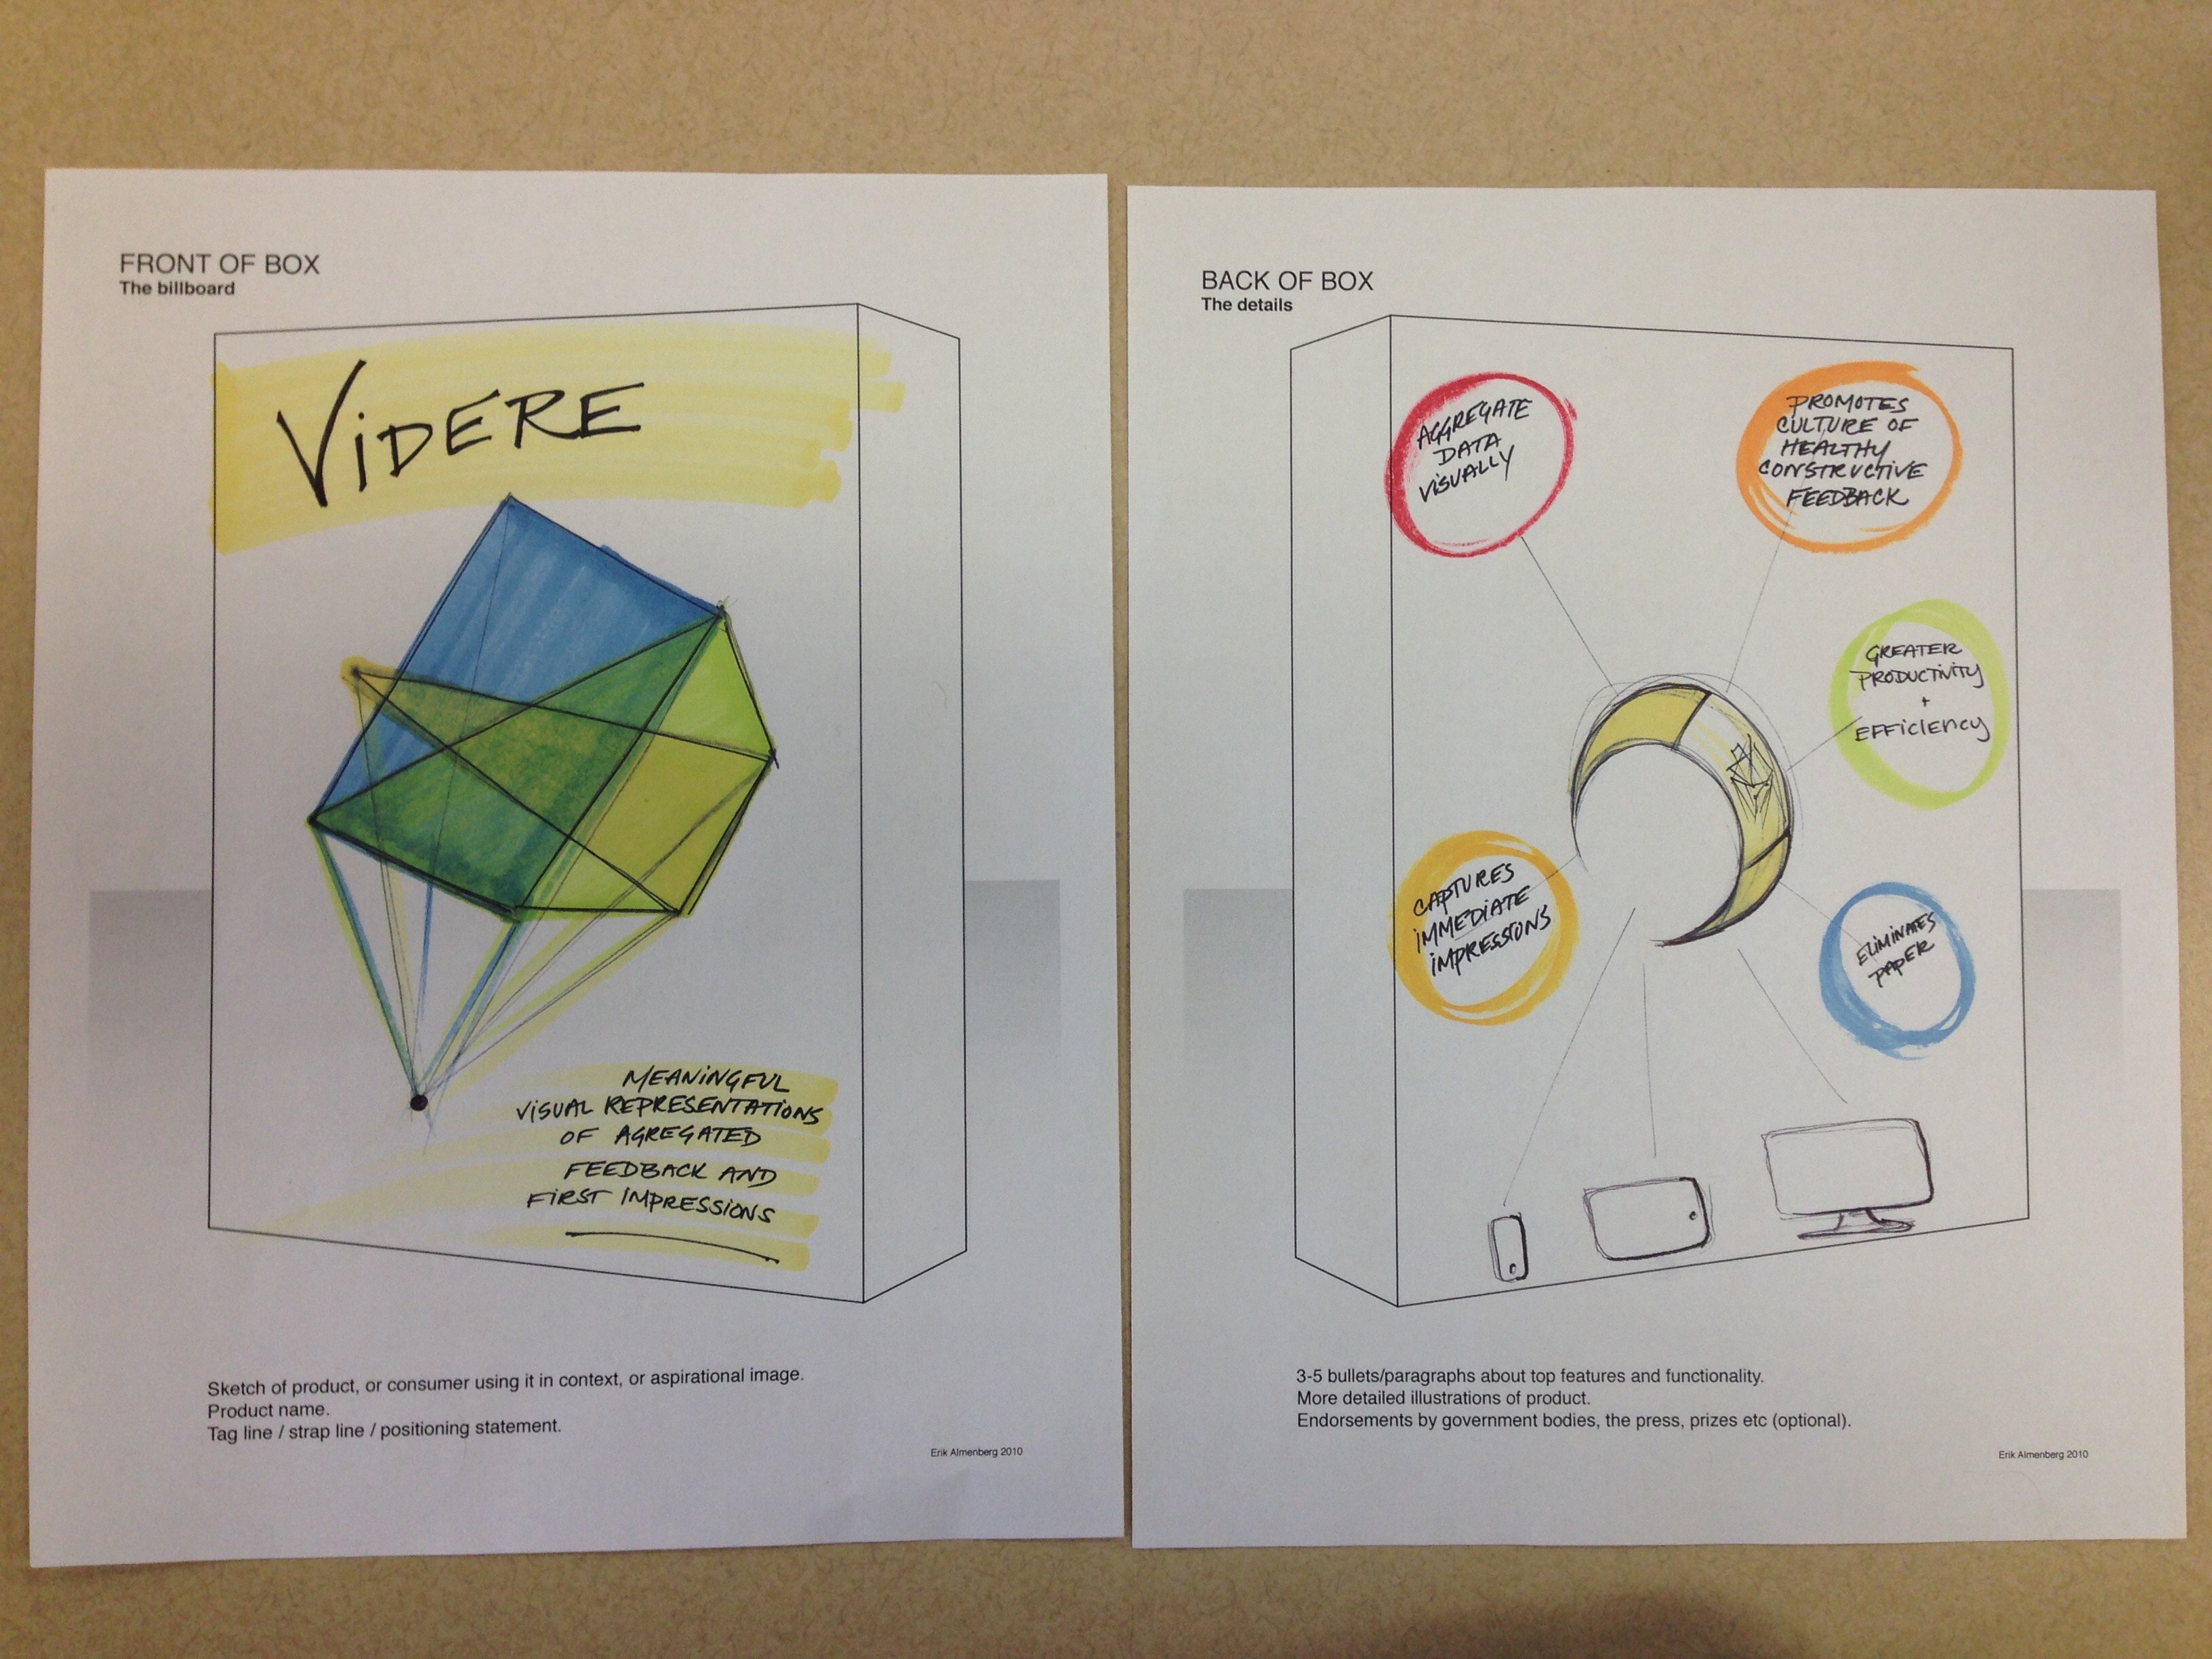 FRONT OF BOX
The billboard
ViDERE
MEANiNGFUL
ViSUAL REPRESENTATiONS
OF AGREGATED
FEEDBACK AND
FiRST iMPRESSiONS
Sketch of product, or consumer using it in context, or aspirational image.
Product name.
Tag line / strap line / positioning statement.
Erik Almenberg 2010
BACK OF BOX
The details
AGGREGATE
DATA
ViSUALLY
PROMOTES
CULTURE OF
HEALTHY
CONSTRUCTiVE
FEEDBACK
GREATER
PRODUCTiViTY
+
EFFiCiENCY
CAPTURES
iMMEDiATE
iMPRESSiONS
ELiMiNATES
PAPER
3-5 bullets/paragraphs about top features and functionality.
More detailed illustrations of product.
Endorsements by government bodies, the press, prizes etc (optional).
Erik Almenberg 2010